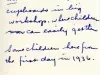 cupboards in big
workshop. when children
now can easily get them
Some children has from
the first day in 1936.